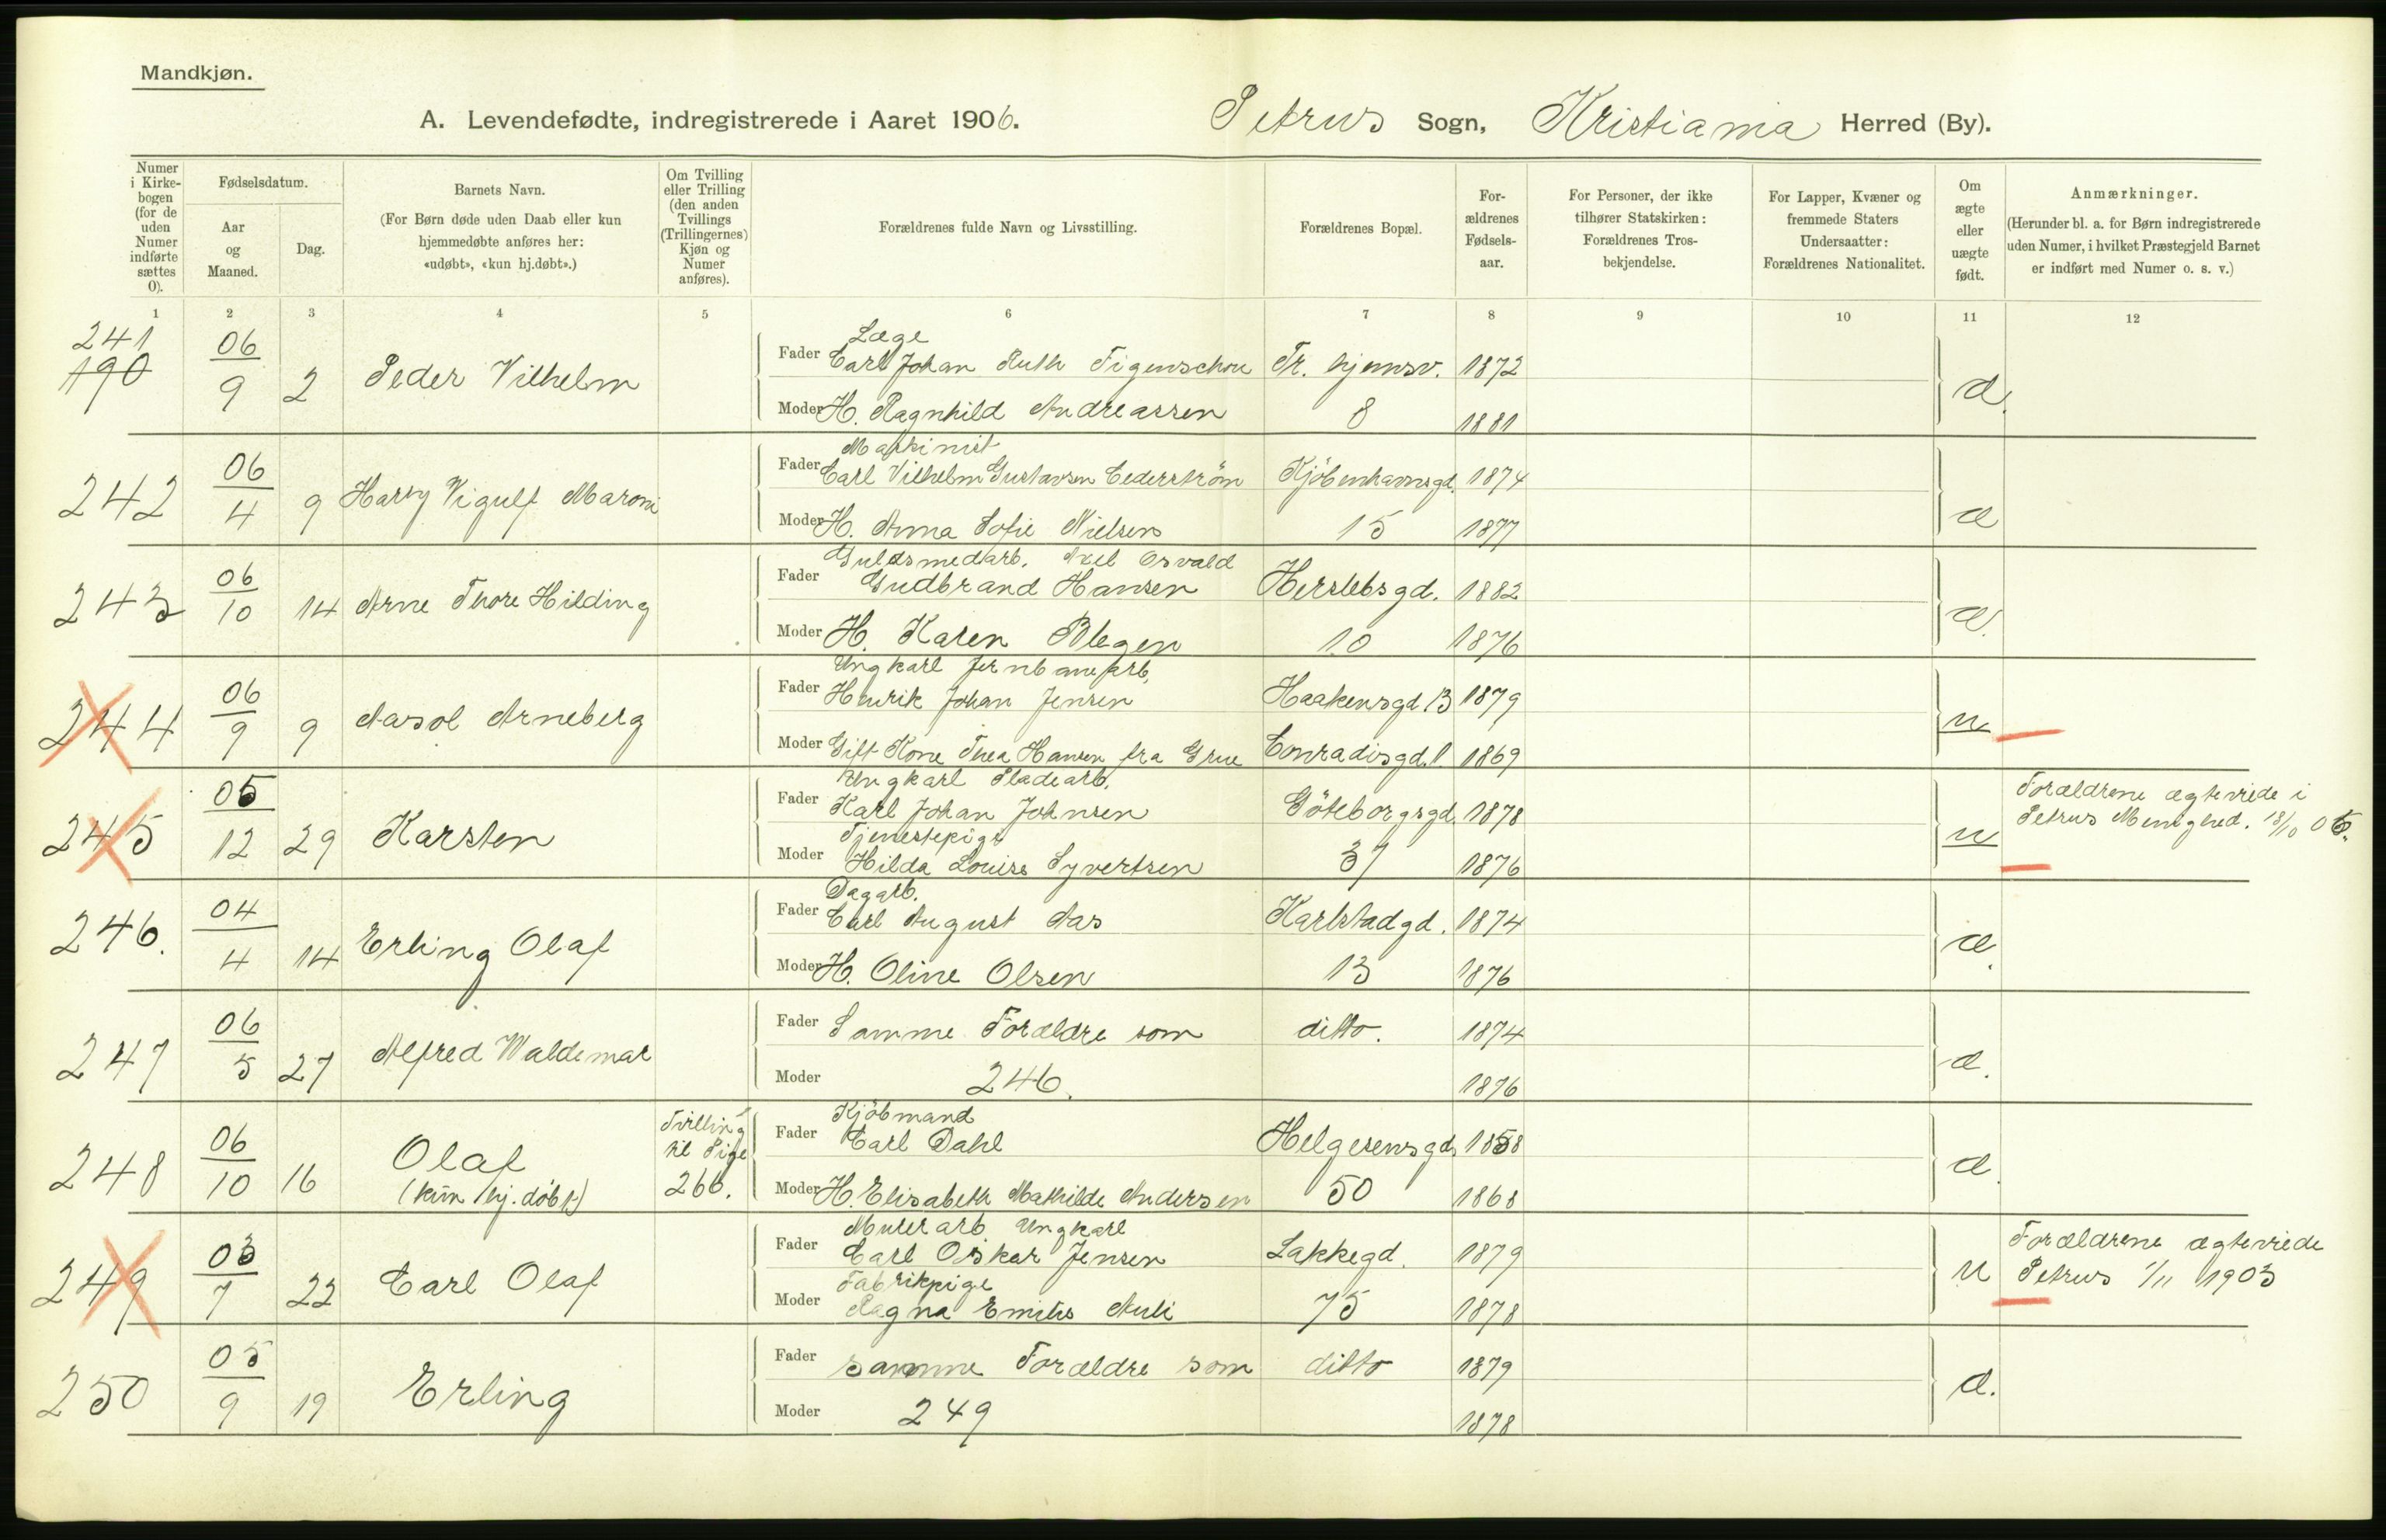 Mandkjøn.
A. Levendefødte, indregistrerede i Aaret 1906. Petrus Sogn, Kristiania Herred (By).
Numer i Kirkebogen (for de uden Numer indførte sættes 0).
Fødselsdatum.
Aar og Maaned.
Dag.
Barnets Navn.
(For Børn døde uden Daab eller kun hjemmedøbte anføres her: «udøbt», «kun hj.døbt».)
Om Tvilling eller Trilling (den anden Tvillings (Trillingernes) Kjøn og Numer anføres).
Forældrenes fulde Navn og Livsstilling.
Forældrenes Bopæl.
Forældrenes Fødselsaar.
For Personer, der ikke tilhører Statskirken: Forældrenes Trosbekjendelse.
For Lapper, Kvæner og fremmede Staters Undersaatter: Forældrenes Nationalitet.
Om ægte eller uægte født.
Anmærkninger.
(Herunder bl. a. for Børn indregistrerede uden Numer, i hvilket Præstegjeld Barnet er indført med Numer o. s. v.)
1 2 3 4 5 6 7 8 9 10 11 12
241
190 06/9 2 Peder Vilhelm
Læge
Fader Carl Johan Ruth Figenschou Tr. hjemsv. 1872 æ.
Moder H. Ragnhild Andreassen 8 1881
242 06/4 9 Harry Vigulf Maroni
Maskinist
Fader Carl Vilhelm Gustavsen Cederström Kjöbenhavnsgd. 1874 æ
Moder H. Anna Sofie Nielsen 15 1877
243 06/10 14 Arne Thore Hilding
Guldsmedarb. Axel Osvald
Fader Gudbrand Hansen Herslebsgd. 1882 æ.
Moder H. Karen Blegen 10 1876
244 06/9 9 Aasol Arneberg
Ungkarl Jernbanearb.
Fader Henrik Johan Jensen Haakensgd 13 1879 u
Moder Gift Kone Thea Hansen fra Grue Conradisgd. 1 1869
245 05/12 29 Karsten
Ungkarl Pladearb.
Fader Karl Johan Johnsen Göteborgsgd. 1878 u
Tjenestepige
Moder Hilda Louise Syvertsen 37 1876
Forældrene ægteviede i
Petrus Menighed. 18/10 06.
246. 04/4 14 Erling Olaf
Dagarb.
Fader Carl August Aas Karlstadgd. 1874 æ.
Moder H. Oline Olsen 13 1876
247 06/5 27 Alfred Waldemar
Fader Samme Forældre som ditto. 1874 æ.
Moder 246. 1876
248 06/10 16 Olaf
(kun hj. døbt)
Tvilling
til Pige
266.
Kjöbmand
Fader Carl Dahl Helgesensgd. 1858 æ.
Moder H. Elisabeth Mathilde Andersen 50 1868
249 03/7 22 Carl Olaf
Murerarb. Ungkarl
Fader Carl Oskar Jensen Lakkegd. 1879 u
Fabrikpige
Moder Ragna Emilie Auli 75 1878
Forældrene ægteviede
Petrus 1/11 1903
250 05/9 19 Erling
Fader samme Forældre som ditto 1879 æ.
Moder 249 1878